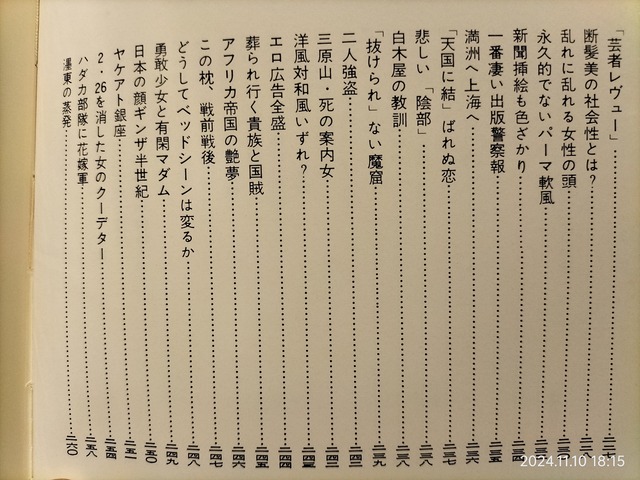 「芸者レヴュー」
断髪美の社会性とは?
乱れに乱れる女性の頭
永久的でないパーマ軟風
新聞挿絵も色ざかり
一番凄い出版警察報……二三五
満洲へ上海へ……二三六
「天国に結」ばれぬ恋……二三七
悲しい「陰部」……二三八
白木屋の教訓……二三八
「抜けられ」ない魔窟……二三九
二人強盗……二四二
三原山・死の案内女……二四二
洋風対和風いずれ?……二四三
エロ広告全盛……二四四
葬られ行く貴族と国賊……二四五
アフリカ帝国の艶夢……二四六
この枕、戦前戦後……二四七
どうしてベッドシーンは変るか……二四八
勇敢少女と有閑マダム……二四九
日本の顔ギンザ半世紀……二五〇
ヤケアト銀座……二五一
2・26を消した女のクーデター……二五四
ハダカ部隊に花嫁軍……二五八
濹東の蒸発……二六〇
2024.11.10 18:15